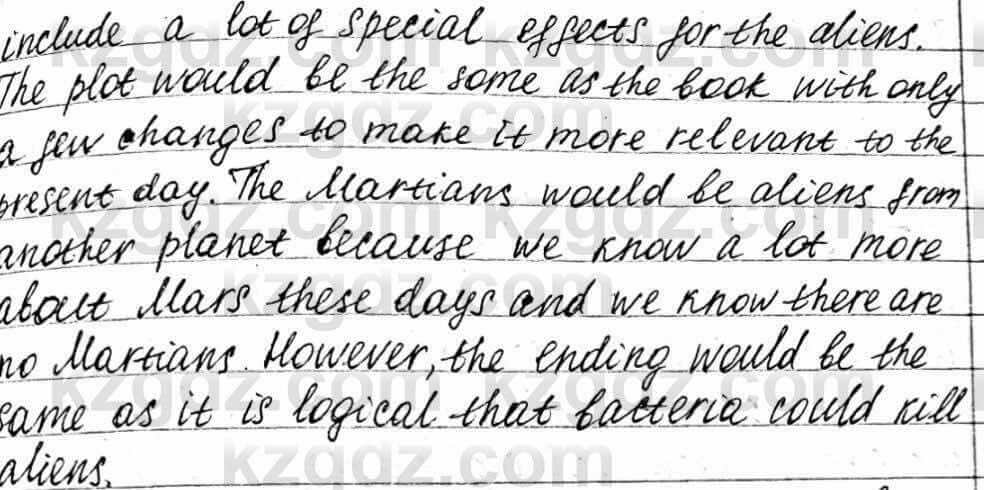 include a lot of special effects for the aliens.
The plot would be the same as the book with only
a few changes to make it more relevant to the
present day. The Martians would be aliens from
another planet because we know a lot more
about Mars these days and we know there are
no Martians. However, the ending would be the
same as it is logical that bacteria could kill
aliens.
kzgdz.com